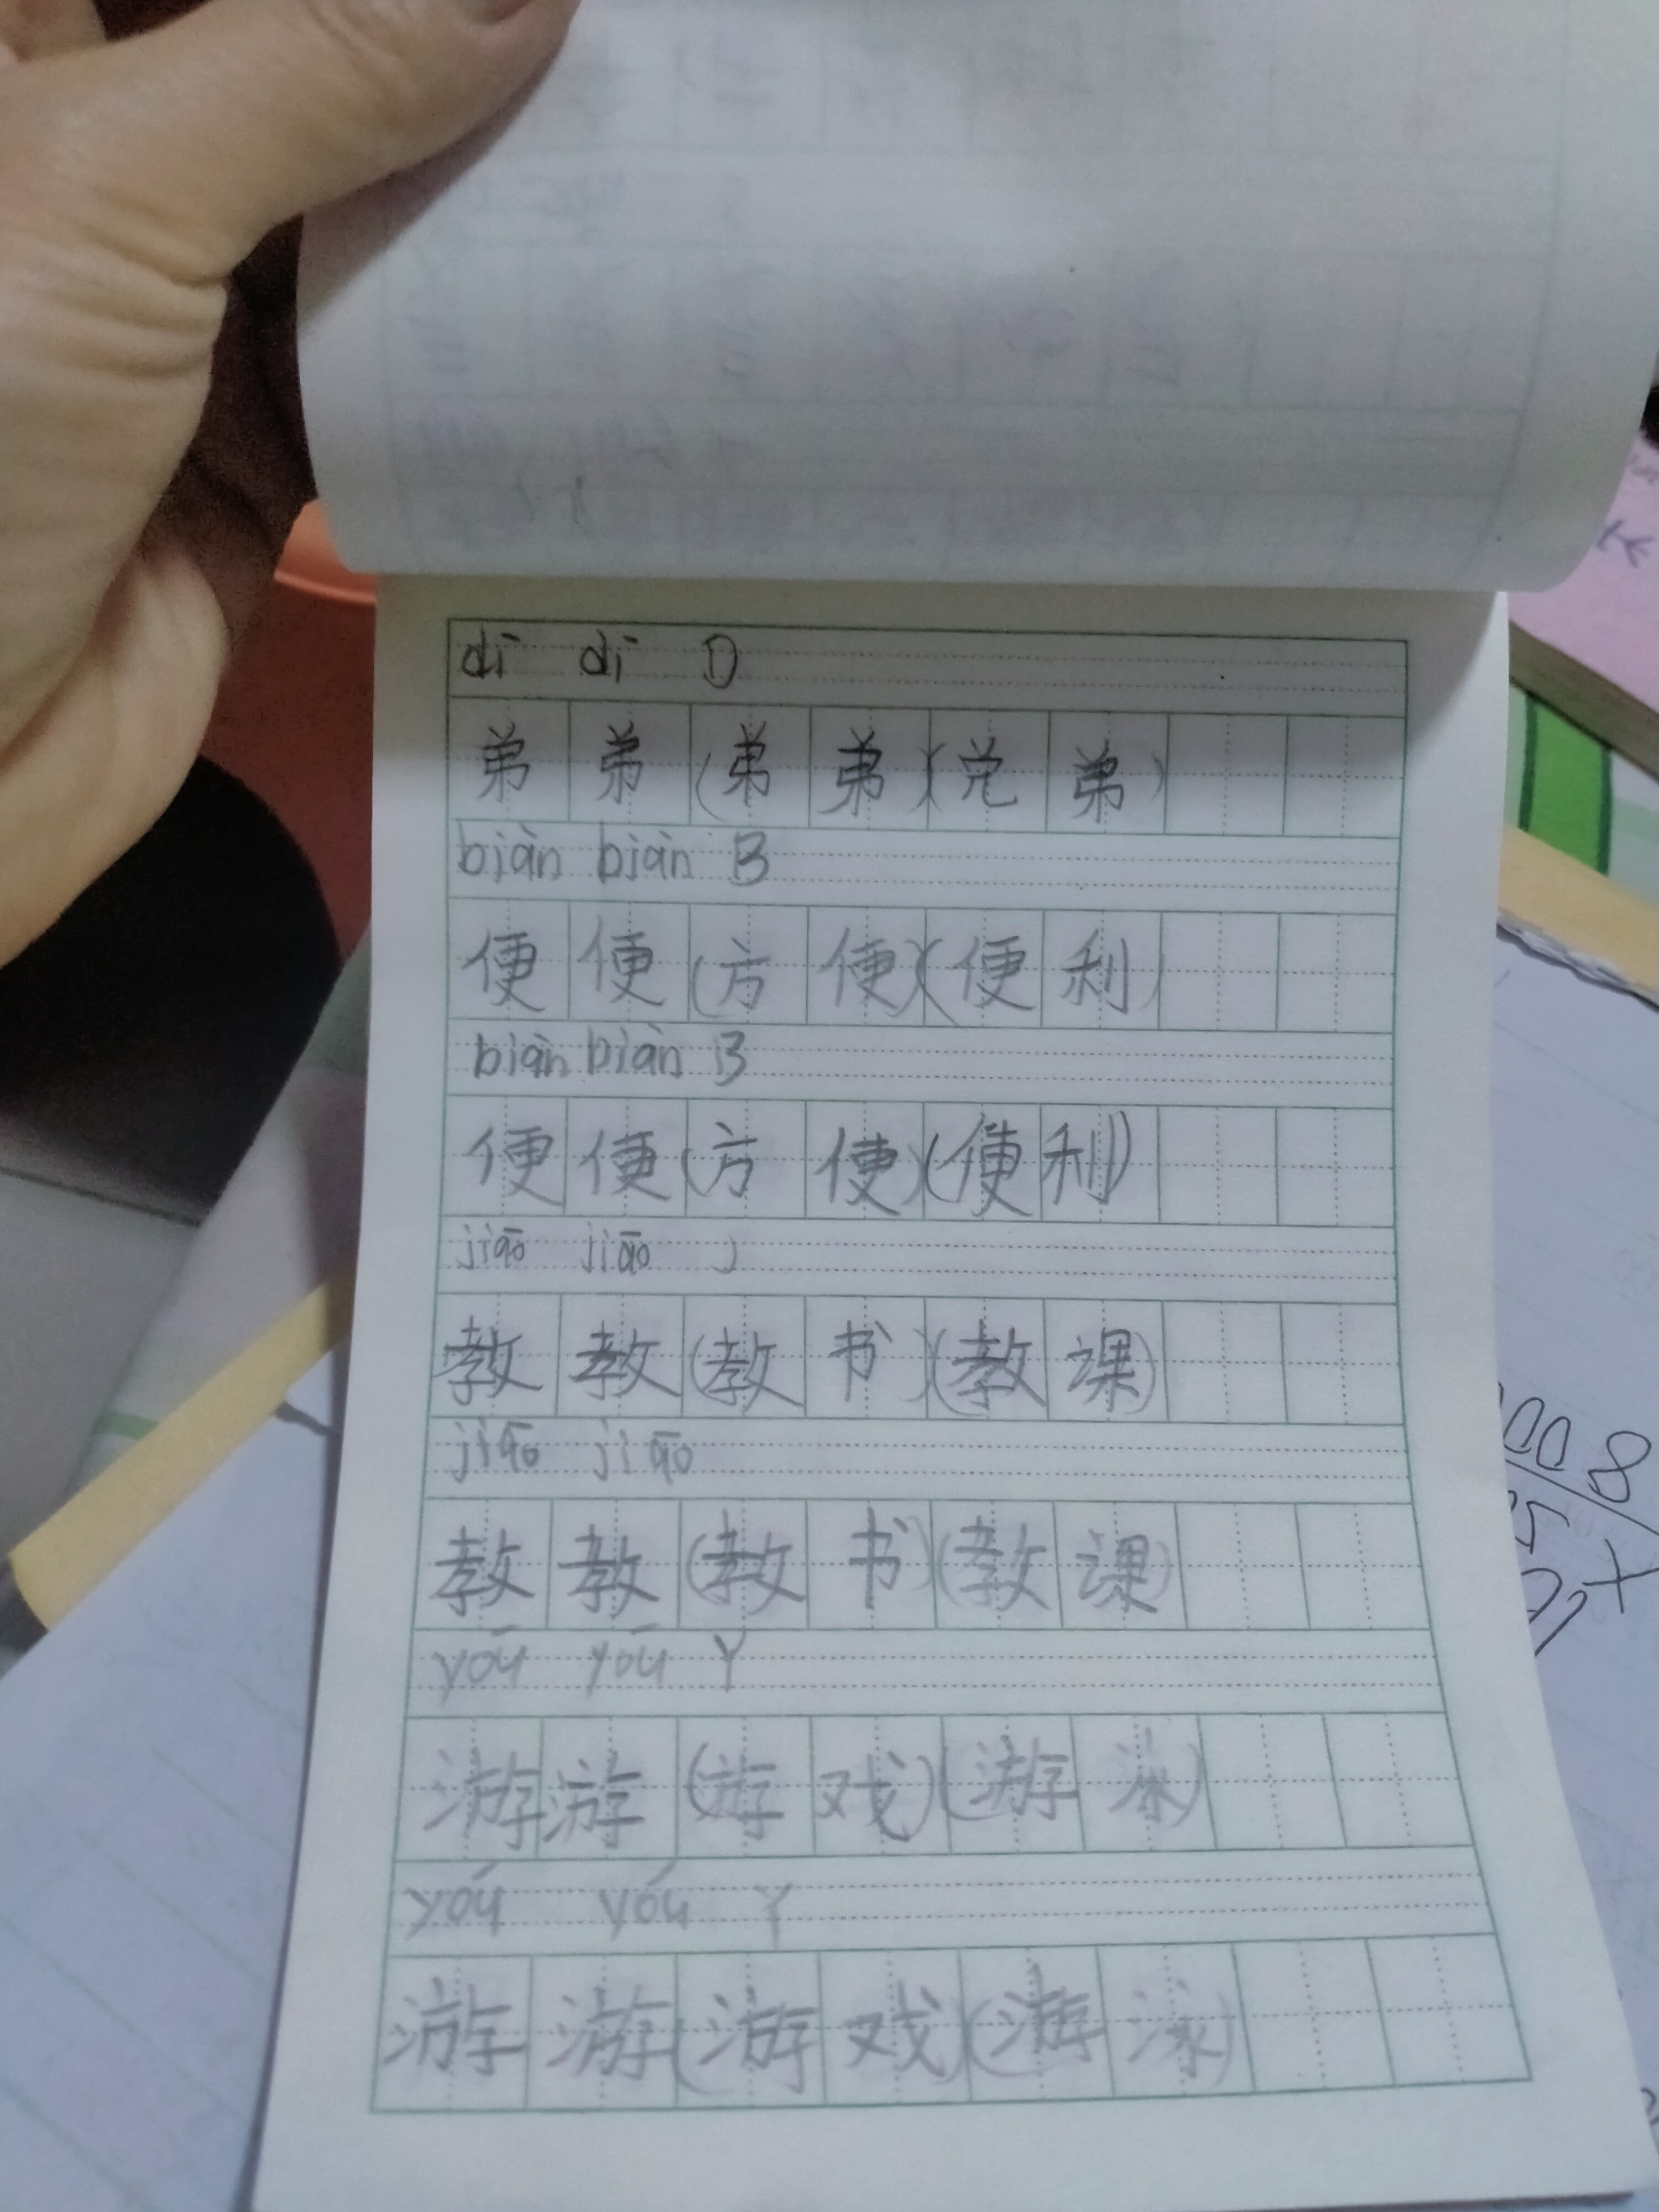 dì dì D
弟弟(弟弟)(兄弟)
biàn biàn B
便便(方便)(便利)
biàn biàn B
便便(方便)(便利)
jiāo jiāo J
教教(教书)(教课)
jiāo jiāo
教教(教书)(教课)
yōu yōu Y
游游(游戏)(游泳)
yóu yóu Y
游游(游戏)(游泳)